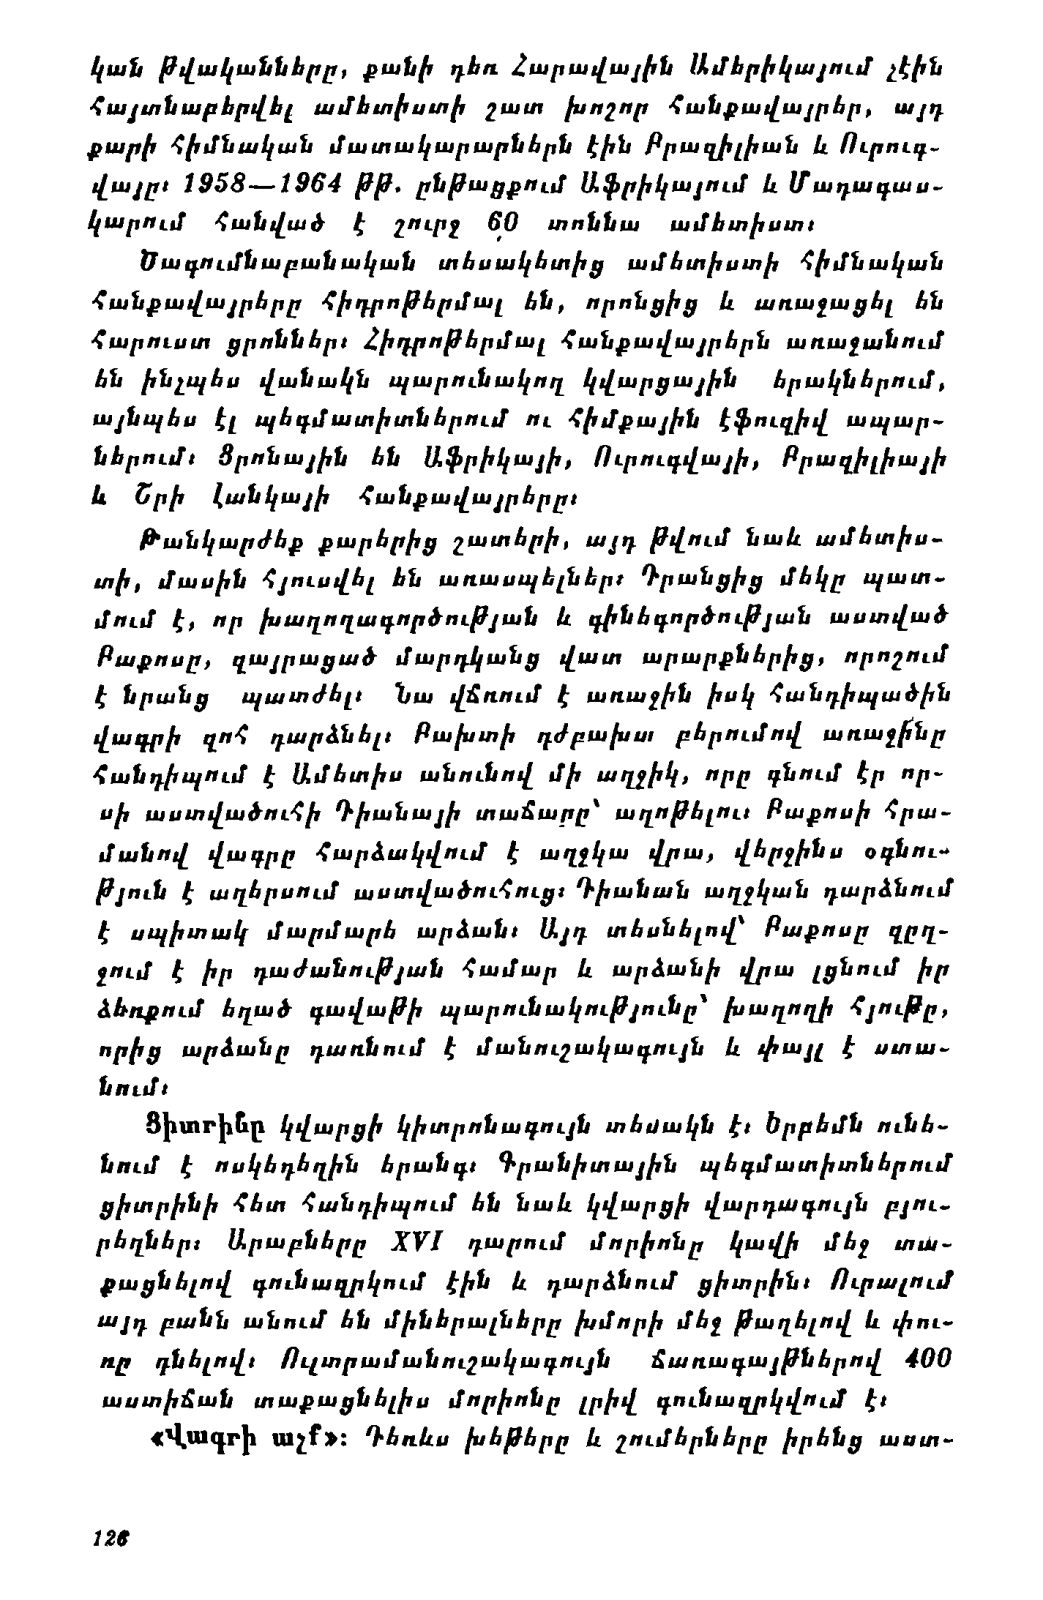 կան թվականները, քանի դեռ Հարավային Ամերիկայում չէին
հայտնաբերվել ամետիստի շատ խոշոր հանքավայրեր, այդ
քարի հիմնական մատակարարներն էին Բրազիլիան և Ուրուգ-
վայը։ 1958—1964 թթ. ընթացքում Աֆրիկայում և Մադագաս-
կարում հանված է շուրջ 60 տոննա ամետիստ։
Ծագումնաբանական տեսակետից ամետիստի հիմնական
հանքավայրերը հիդրոթերմալ են, որոնցից և առաջացել են
հարուստ ցրոններ։ Հիդրոթերմալ հանքավայրերն առաջանում
են ինչպես վանակն պարունակող կվարցային երակներում,
այնպես էլ պեգմատիտներում ու հիմքային էֆուզիվ ապար-
ներում։ Ցրոնային են Աֆրիկայի, Ուրուգվայի, Բրազիլիայի
և Շրի Լանկայի հանքավայրերը։
Թանկարժեք քարերից շատերի, այդ թվում նաև ամետիս-
տի, մասին հյուսվել են առասպելներ։ Դրանցից մեկը պատ-
մում է, որ խաղողագործության և գինեգործության աստված
Բաքոսը, զայրացած մարդկանց վատ արարքներից, որոշում
է նրանց պատժել։ Նա վճռում է առաջին իսկ հանդիպածին
վագրի զոհ դարձնել։ Բախտի դժբախտ բերումով առաջինը
հանդիպում է Ամետիս անունով մի աղջիկ, որը գնում էր որ-
սի աստվածուհի Դիանայի տաճարը՝ աղոթելու։ Բաքոսի հրա-
մանով վագրը հարձակվում է աղջկա վրա, վերջինս օգնու-
թյուն է աղերսում աստվածուհուց։ Դիանան աղջկան դարձնում
է սպիտակ մարմարե արձան։ Այդ տեսնելով՝ Բաքոսը զըղ-
ջում է իր դաժանության համար և արձանի վրա լցնում իր
ձեռքում եղած գավաթի պարունակությունը՝ խաղողի հյութը,
որից արձանը դառնում է մանուշակագույն և փայլ է ստա-
նում։
Ցիտրինը կվարցի կիտրոնագույն տեսակն է։ Երբեմն ունե-
նում է ոսկեդեղին երանգ։ Գրանիտային պեգմատիտներում
ցիտրինի հետ հանդիպում են նաև կվարցի վարդագույն բյու-
րեղներ։ Արաբները XVI դարում մորիոնը կավի մեջ տա-
քացնելով գունազրկում էին և դարձնում ցիտրին։ Ուրալում
այդ բանն անում են միներալները խմորի մեջ թաղելով և փու-
ռը դնելով։ Ուլտրամանուշակագույն ճառագայթներով 400
աստիճան տաքացնելիս մորիոնը լրիվ գունազրկվում է։
«Վագրի աչք»։ Դեռևս խեթերը և շումերները իրենց աստ-
126